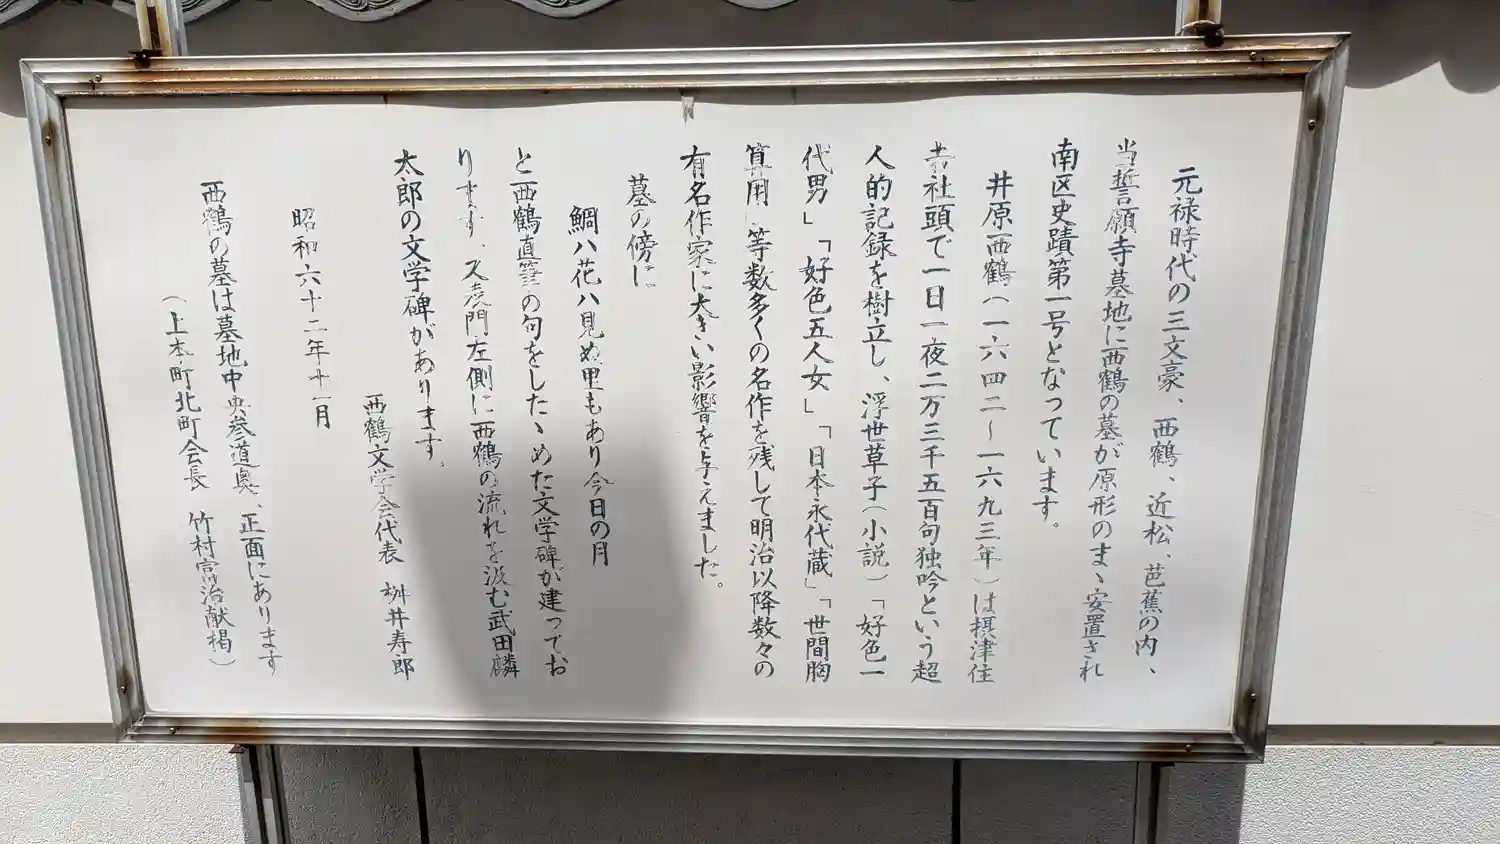 元禄時代の三文豪、西鶴、近松、芭蕉の内、
当誓願寺墓地に西鶴の墓が原形のまゝ安置され
南区史蹟第一号となっています。
井原西鶴(一六四二〜一六九三年)は摂津住
吉社頭で一日一夜二万三千五百句独吟という超
人的記録を樹立し、浮世草子(小説)「好色一
代男」「好色五人女」「日本永代蔵」「世間胸
算用」等数多くの名作を残して明治以降数々の
有名作家に大きい影響を与えました。
墓の傍に
鯛ハ花ハ見ぬ里もあり今日の月
と西鶴直筆の句をしたゝめた文学碑が建ってお
ります、又虎門左側に西鶴の流れを汲む武田麟
太郎の文学碑があります。
西鶴文学会代表 桝井寿郎
昭和六十二年十一月
西鶴の墓は墓地中央参道奥、正面にあります
(上本町北町会長 竹村 治献掲)